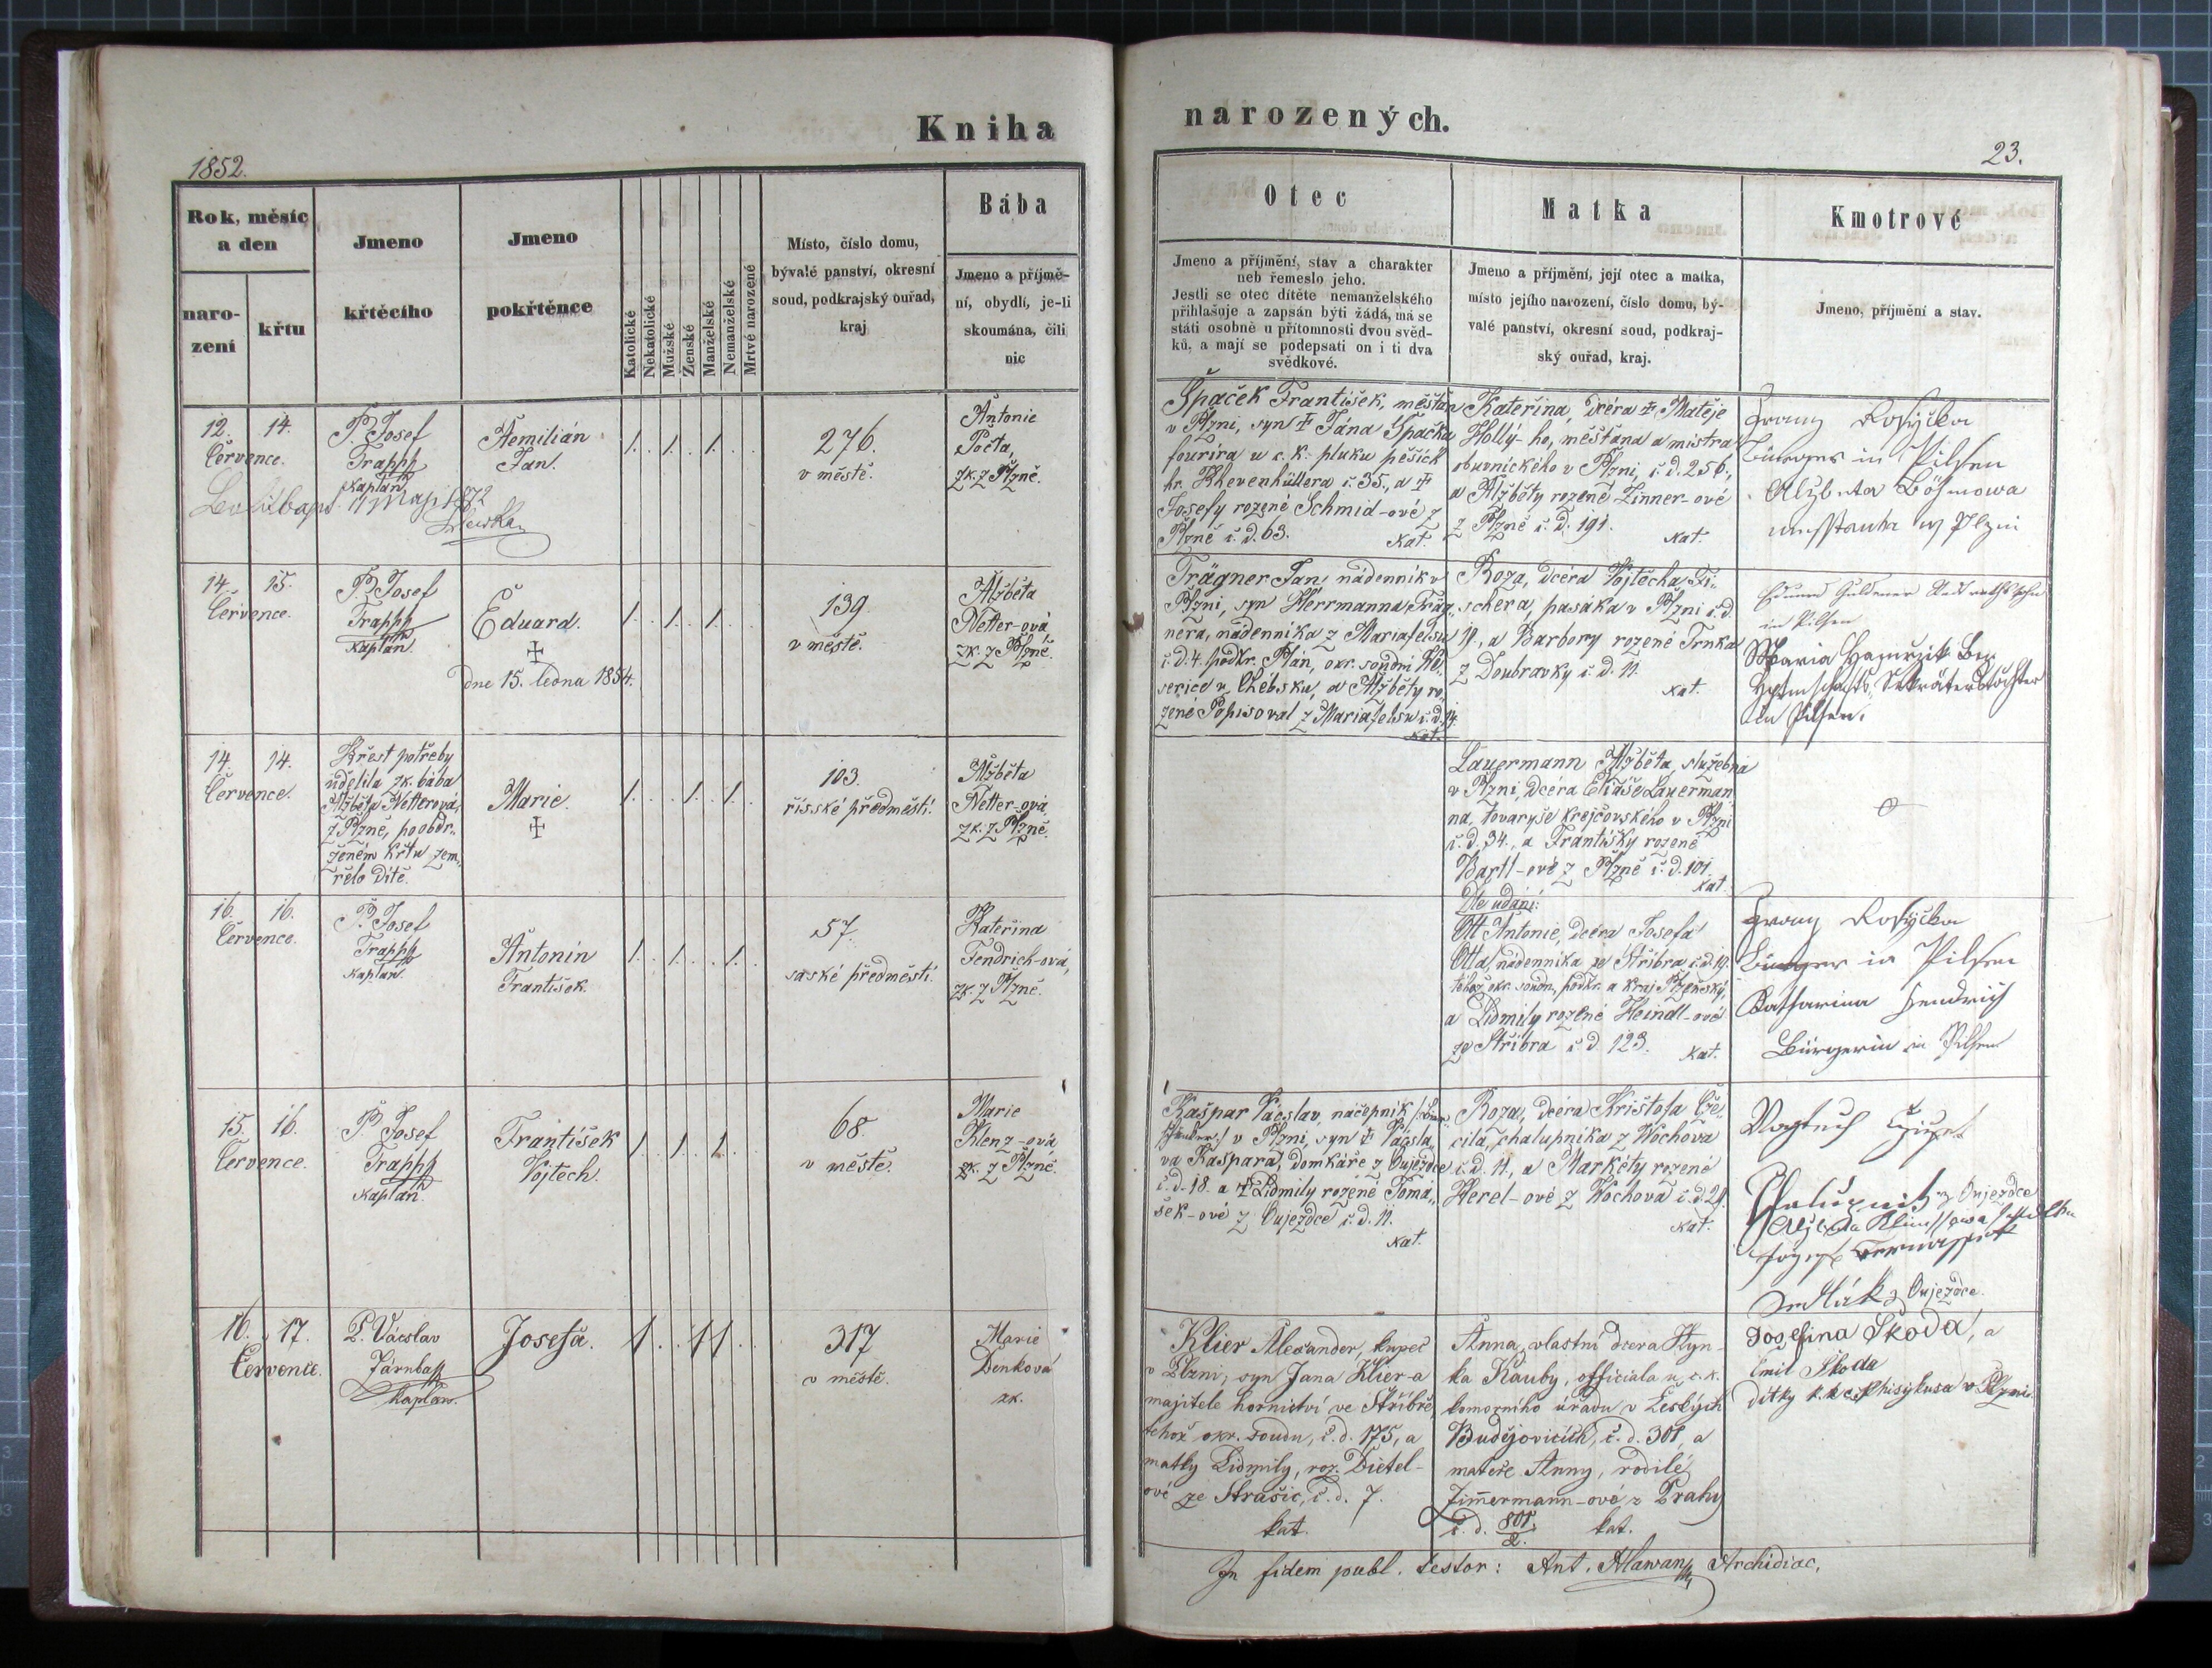 Kniha
narozených.
1852.
23.
Rok, měsíc
a den
naro-
zení
křtu
Jmeno
křtěcího
Jmeno
pokřtěnce
Katolické
Nekatolické
Mužské
Ženské
Manželské
Nemanželské
Mrtvě narozené
Místo, číslo domu,
bývalé panství, okresní
soud, podkrajský ouřad,
kraj
Bába
Jmeno a příjmě-
ní, obydlí, je-li
skoumána, čili
nic
Otec
Jmeno a příjmění, stav a charakter
neb řemeslo jeho.
Jestli se otec dítěte nemanželského
přihlašuje a zapsán býti žádá, má se
státi osobně u přítomnosti dvou svěd-
ků, a mají se podepsati on i ti dva
svědkové.
Matka
Jmeno a příjmění, její otec a matka,
místo jejího narození, číslo domu, bý-
valé panství, okresní soud, podkraj-
ský ouřad, kraj.
Kmotrové
Jmeno, příjmění a stav.
12. 14.
Července.
P. Josef
Trapp
Kaplan
11 Maji 1872
Aemilián
Jan.
1. 1. 1.
276.
v městě.
Antonie
Počta,
zk. z Plzně.
Špaček František, měšťan
v Plzni, syn † Jana Špačka
fourira u c. k. pluku pěších
hr. Khevenhüllera č. 35., a †
Josefy rozené Schmid-ové z
Plzně č. d. 63.
Kat.
Kateřina, dcéra † Matěje
Hollý-ho, měšťana a mistra
obuvnického v Plzni, č. d. 256.,
a Alžběty rozené Zinner-ové
z Plzně č. d. 191.
Kat.
Franz Rosyčka
Bürger in Pilsen
Alzbeta Böhmowa
messtanka w Plzni
14. 15.
Července.
P. Josef
Trapp
Kaplan
Eduard.
†
dne 15. ledna 1854.
1. 1. 1.
139.
v městě.
Alžběta
Netter-ová
zk. z Plzně.
Trägner Jan, nádenník v
Plzni, syn Herrmanna Träg-
nera, nádenníka z Mariafelsu
č. d. 4. podkr. Plán, okr. soudní
v Chebsku, a Alžběty ro-
zené Popisoval z Mariafelsu č. d. 14.
Kat.
Roza, dcéra Vojtěcha Fi-
schera, pasáka v Plzni č. d.
19., a Barbory rozené Trnka
z Doubravky č. d. 11.
Kat.
in Pilsen
Maria
in Pilsen.
14. 14.
Července.
Křest potřeby
udělila zk. bába
Alžběta Netterová,
z Plzně, po obdr-
ženém křtu zem-
řelo dítě.
Marie.
†
1. 1. 1.
103.
říšské předměstí.
Alžběta
Netter-ová
zk. z Plzně.
Lauermann Alžběta, služebná
v Plzni, dcéra Eliáše Lauerman-
na, tovaryše krejčovského v Plzni
č. d. 34., a Františky rozené
Bartl-ové z Plzně č. d. 101.
Kat.
16. 16.
Července.
P. Josef
Trapp
Kaplan.
Antonín
František.
1. 1. 1.
57.
saské předměstí.
Kateřina
Fendrich-ová,
zk. z Plzně.
Dle udání:
Ott Antonie, dcéra Josefa
Otta, nádenníka ze Stříbra č. d. 19.
téhož okr. soudu, podkr. a kraj Plzeňský,
a Lidmily rozené Heindl-ové
ze Stříbra č. d. 123.
Kat.
Franz Rosyčka
Bürger in Pilsen
Catharina Fendrich
Bürgerin in Pilsen
15. 16.
Července.
P. Josef
Trapp
Kaplan.
František
Vojtech.
1. 1. 1.
68.
v městě.
Marie
Klenz-ová,
zk. z Plzně.
Kašpar Vácslav, náčepník
v Plzni, syn † Vácsla-
va Kašpara, domkáře z Oujezdce
č. d. 18. a † Lidmily rozené Tomá-
šek-ové z Oujezdce č. d. 11.
Kat.
Roza, dcéra Krištofa
chalupníka z Wochova
č. d. 11., a Markéty rozené
Herel-ové z Wochova č. d. 29.
Kat.
z Oujezdce
Sedlák z Oujezdce.
16. 17.
Července.
P. Vácslav
Járnba
Kaplan.
Josefa.
1 1 1
317
v městě.
Marie
Denková
zk.
Klier Alexander, kupec
v Plzni, syn Jana Klier-a
majitele hornictví ve Stříbře,
téhož okr. soudu, č. d. 175, a
matky Lidmily, roz. Dietel-
ové ze Strašic, č. d. 7.
kat.
Anna, vlastní dcera Hyn-
ka Kauby, officiala u c. k.
komorního úřadu v Českých
Budějovicích, č. d. 301, a
mateře Anny, rodilé
Zimmermann-ové z Prahy
č. d. 801/2. kat.
Josefina Škoda, a
Emil Škoda
dítky k. k. c. Phisykusa v Plzni.
In fidem publ. testor: Ant. Hlawan Archidiac.